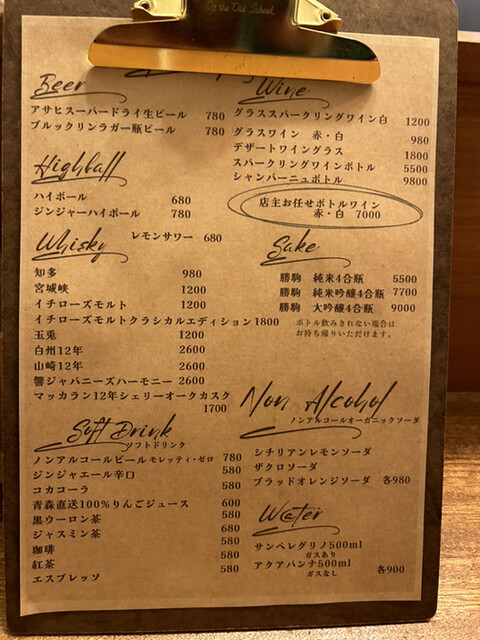 of the Old School
Beer
アサヒスーパードライ生ビール 780
ブルックリンラガー瓶ビール 780
Highball
ハイボール 680
ジンジャーハイボール 780
レモンサワー 680
Whisky
知多 980
宮城峡 1200
イチローズモルト 1200
イチローズモルトクラシカルエディション 1800
玉兎 1200
白州12年 2600
山崎12年 2600
響ジャパニーズハーモニー 2600
マッカラン12年シェリーオークカスク
1700
Soft Drink
ソフトドリンク
ノンアルコールビール モレッティ・ゼロ 780
ジンジャエール辛口 580
コカコーラ 580
青森直送100%りんごジュース 600
黒ウーロン茶 580
ジャスミン茶 680
珈琲 580
紅茶 580
エスプレッソ
Wine
グラススパークリングワイン白 1200
グラスワイン 赤・白 980
デザートワイングラス 1800
スパークリングワインボトル 5500
シャンパーニュボトル 9800
店主お任せボトルワイン
赤・白 7000
Sake
勝駒 純米4合瓶 5500
勝駒 純米吟醸4合瓶 7700
勝駒 大吟醸4合瓶 9000
ボトル飲みきれない場合は
お持ち帰りいただけます。
Non Alcohol
ノンアルコールオーガニックソーダ
シチリアンレモンソーダ
ザクロソーダ
ブラッドオレンジソーダ 各980
Water
サンペレグリノ500ml
ガスあり
アクアパンナ500ml
ガスなし 各900